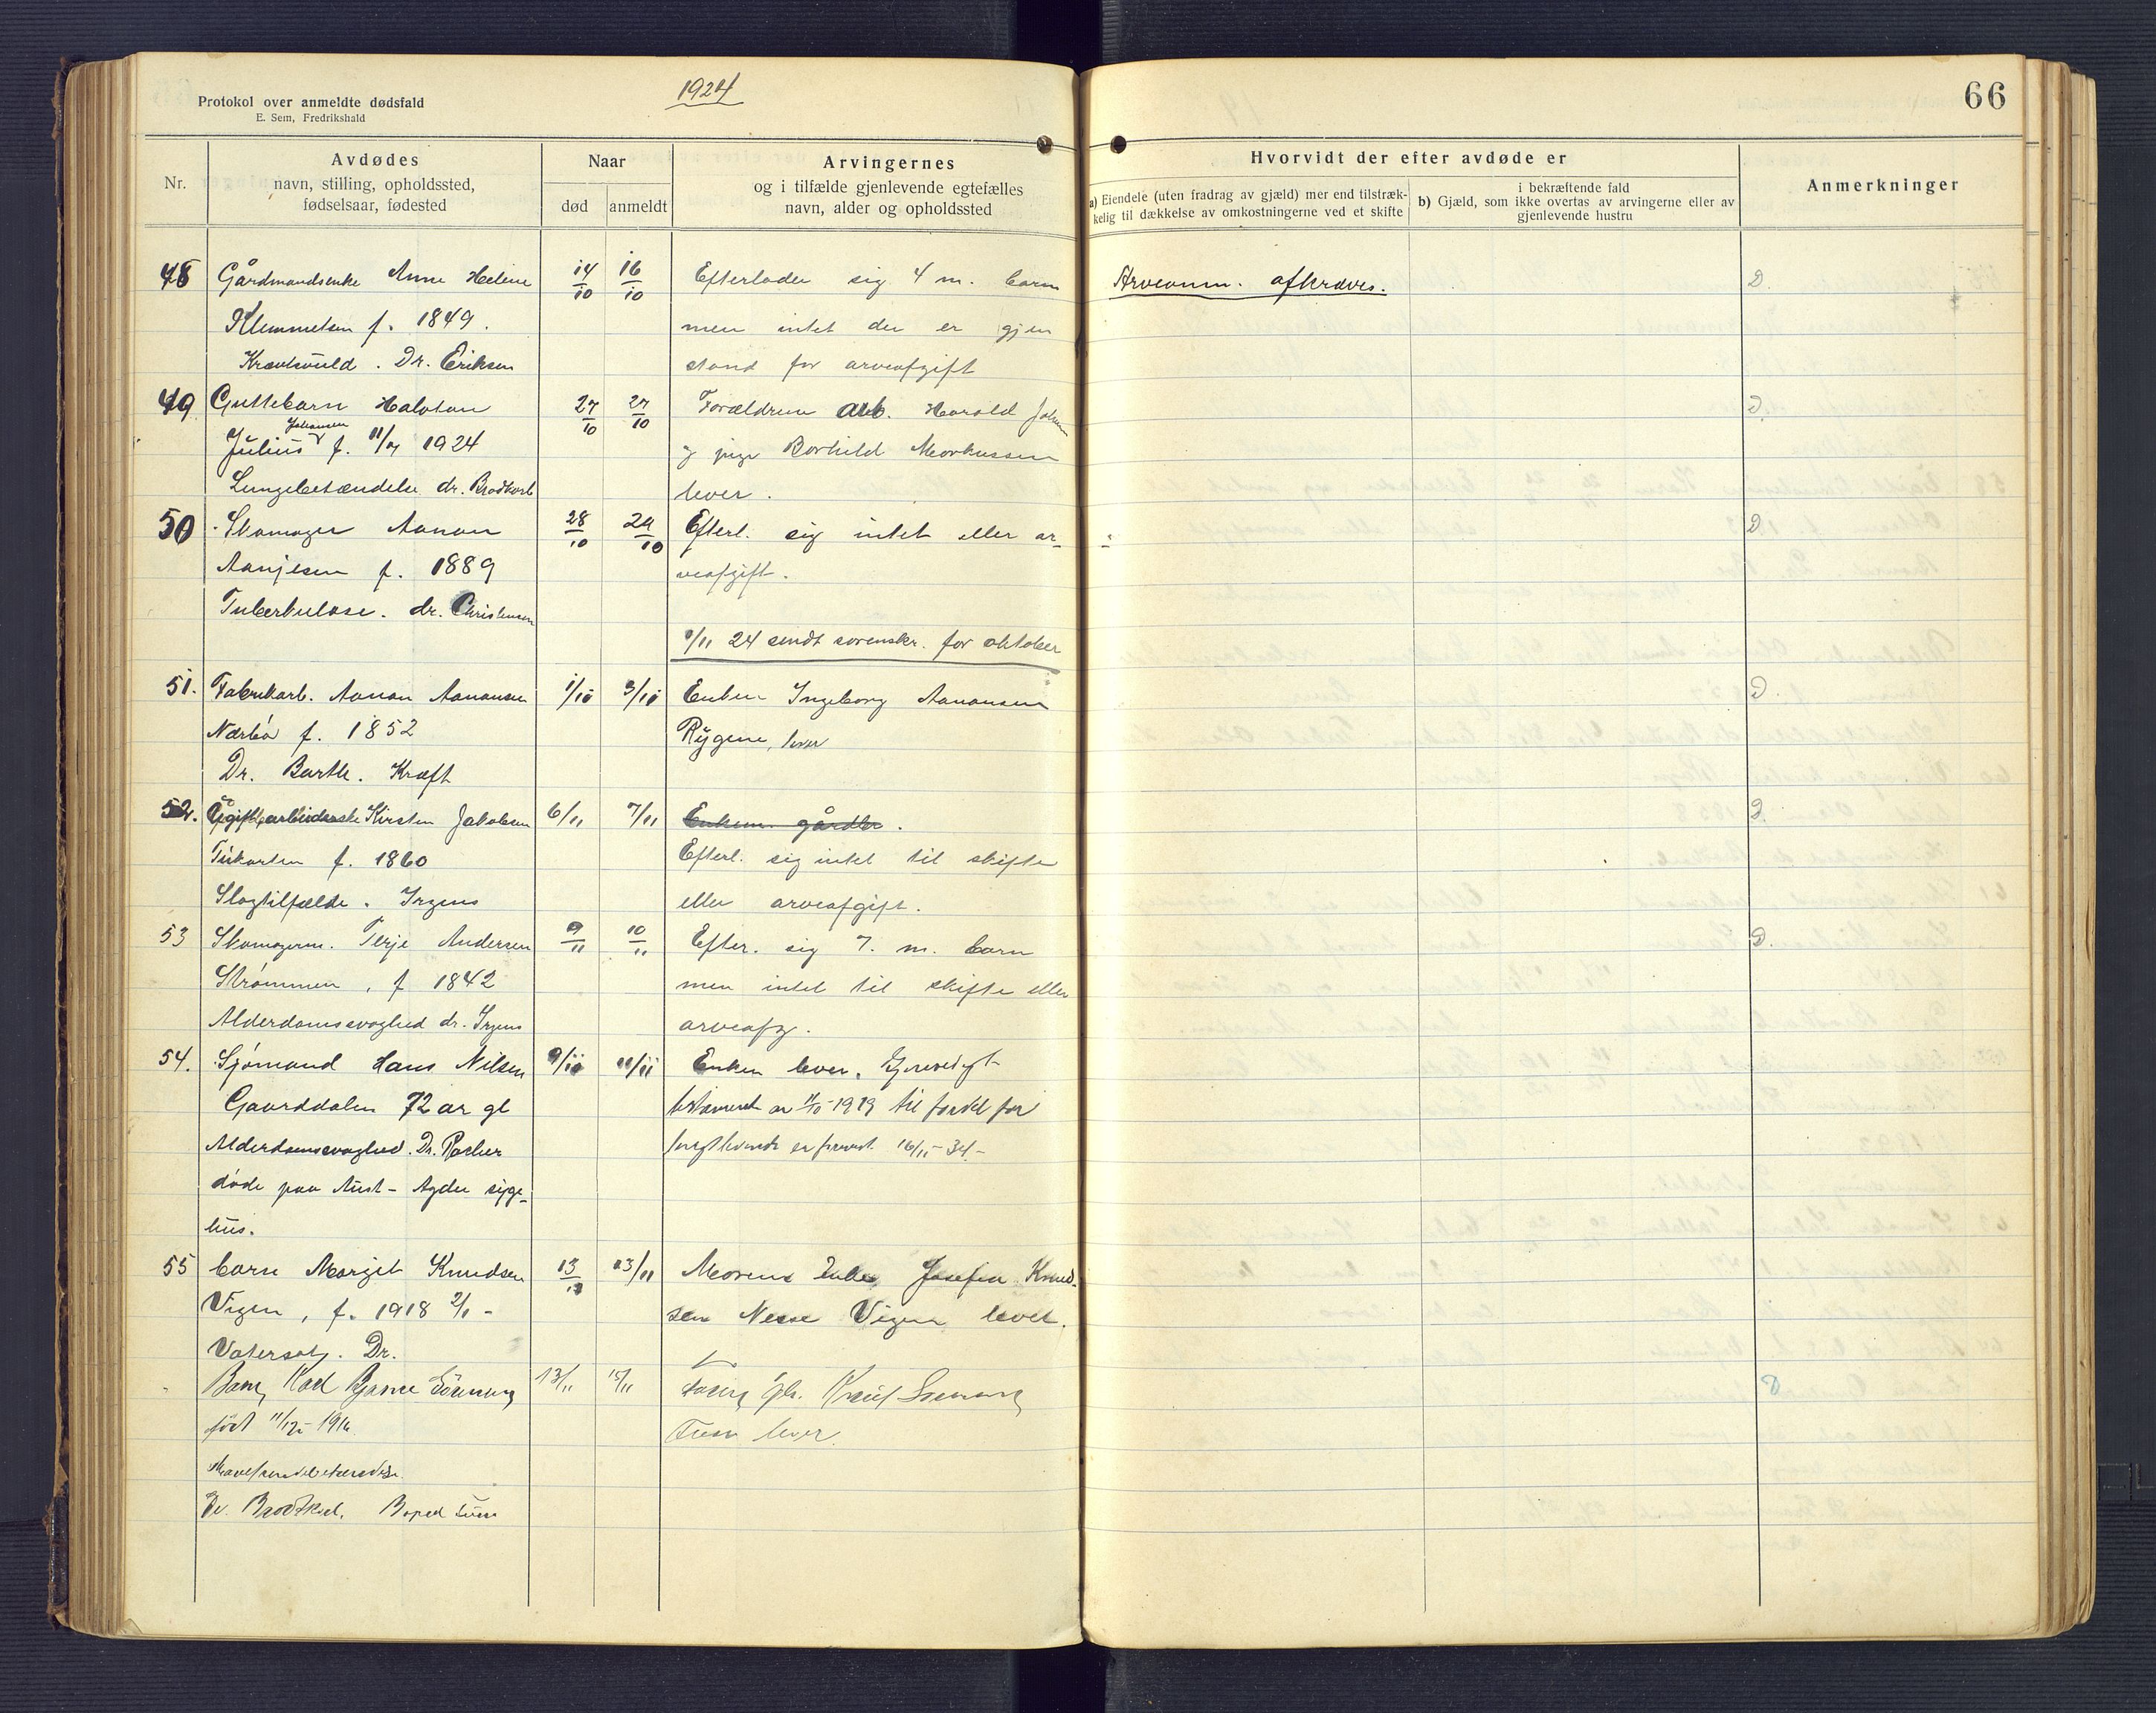 Protokol over anmeldte dødsfald
E. Sem, Fredrikshald
1924
66
Nr.
Avdødes
navn, stilling, opholdssted,
fødselsaar, fødested
Naar
død
anmeldt
Arvingernes
og i tilfælde gjenlevende egtefælles
navn, alder og opholdssted
Hvorvidt der efter avdøde er
a) Eiendele (uten fradrag av gjæld) mer end tilstræk-
kelig til dækkelse av omkostningerne ved et skifte
i bekræftende fald
b) Gjæld, som ikke overtas av arvingerne eller av
gjenlevende hustru
Anmerkninger
48 Gårdmandsenke Anne Helene 14/10 16/10 Efterlader sig 4 m. barn Arveanm. afkræves. D.
Klemmetsen f. 1849. men intet der er gjen
Dr. Eriksen stand for arveafgift
49 Guttebarn Halvtan 27/10 27/10 Forældrene arb. Harald D.
Johansen
Julius f. 1924 pige Borhild Markussen
Lungebetændelse dr. Brodtkorb lever.
50 Skomager Aanon 28/10 29/10 Efterl. sig intet eller ar- D
Aanjesen f. 1889 veafgift.
Tuberkulose. dr. Christensen
24 sendt sorenskr. for oktober
51. Fabrikarb. Aanon Aanonsen 1/10 3/10 Enken Ingeborg Aanonsen D.
f. 1852 Rygene, lever
Dr. Barth. Kræft
52. Kirsten Jakobsen 6/11 7/11 Enken gårdbr. D.
f. 1860 Efterl. sig intet til skifte
Slagtilfælde. Irgens eller arveafgift.
53 Skomagerm. Terje Andersen 9/11 10/11 Efter. sig 7. m. barn D.
Strømmen, f 1842 men intet til skifte eller
Alderdomssvaghed dr. Irgens arveafg.
54. Sjømand Hans Nilsen 11/11 Enken lever. Gjensidigt
Gaarddalen 72 ar gl 1919 til fordel for
Alderdomssvaghed. Dr. længstlevende er
døde paa Aust-Agder syge-
hus.
55 barn Margit Knudsen 13/11 13/11 Moren Enke Josefine Knud-
Vigen, f. 1918 2/1 - sen Nesse Vigen lever.
Vatersot. Dr.
Barn Karl Bjarne 13/11 15/11 D
født 11/12-1916 lever.
Dr. Brodtkorb.